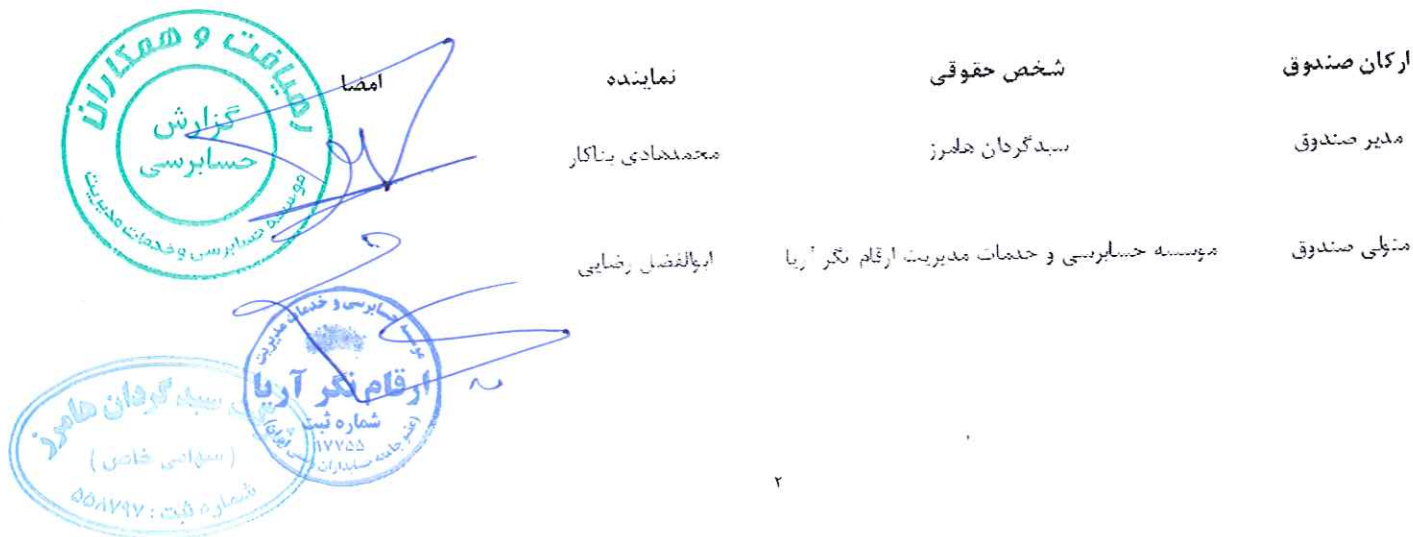 ارکان صندوق شخص حقوقی نماینده امضا
مدیر صندوق سبدگردان هامرز محمدهادی بناکار
متولی صندوق موسسه حسابرسی و خدمات مدیریت ارقام نگر آریا ابوالفضل رضایی
رهیافت و همکاران
گزارش
حسابرسی
موسسه حسابرسی و خدمات مدیریت
موسسه حسابرسی و خدمات مدیریت
ارقام نگر آریا
شماره ثبت
۱۷۷۵۵
(عضو جامعه حسابداران رسمی ایران)
شرکت سبدگردان هامرز
(سهامی خاص)
شماره ثبت : ۵۵۸۷۹۷
۲